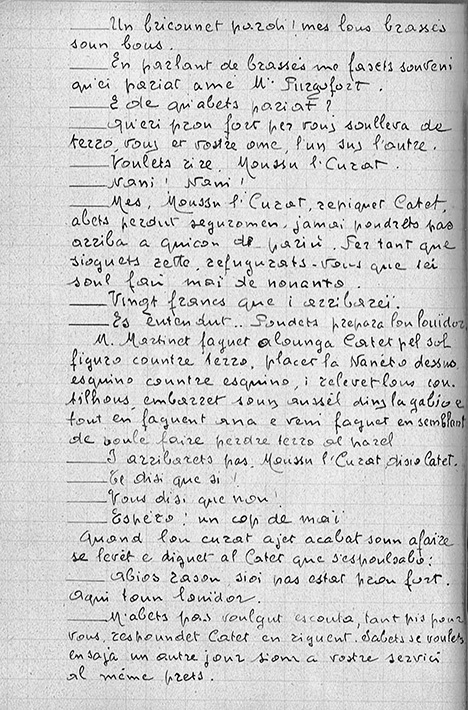 ___Un bricounet pardi! mes lous brassés
soun bous.
___En parlant de brassés me fasets souveni
qu'ei pariat amé Mr Purgofort.
___E de qu'abets pariat?
___Qu'eri prou fort per vous soulleva de
terro, vous er vostre ome, l'un sus l'autre.
___Voulets rire, Moussu l'Curat.
___Nani! Nani!
___Mes, Moussu l'Curat, repiquet Catet,
abets perdut seguromen, jamai poudrets pas
arriba a quicon de pariu. Per tant que
sioguets rette, refugurats-vous que iéi
soul fau mai de nonanto.
___Vingt francs que i arribarei.
___Es entendut.. Poudets prepara lou louidor.
M. Martinet faguet alounga Catet pel sol
figuro countre terro, placet la Naneto dessus
esquino countre esquino, i relevet lous cou-
tilhous, embarret soun aussèl dins la gabio e
tout en faguent ana e veni faguet en semblant
de voule faire perdre terro al parel
___I arribarets pas, Moussu l'Curat, disio Catet.
___Te disi que si!
___Vous disi que nou!
___Espèro! un cop de mai
Quand lou curat ajet acabat soun afaire
se levèt e diguet al Catet que s'espoulsabo:
___Abios rasou, sioi pas estat prou fort.
Aqui toun louidor.
___M'abets pas voulgut escouta, tant pis pour
vous, respoundet Catet en riguent. Sabets se voulets
ensaja un autre jour siom a vostre servici
al même prets.